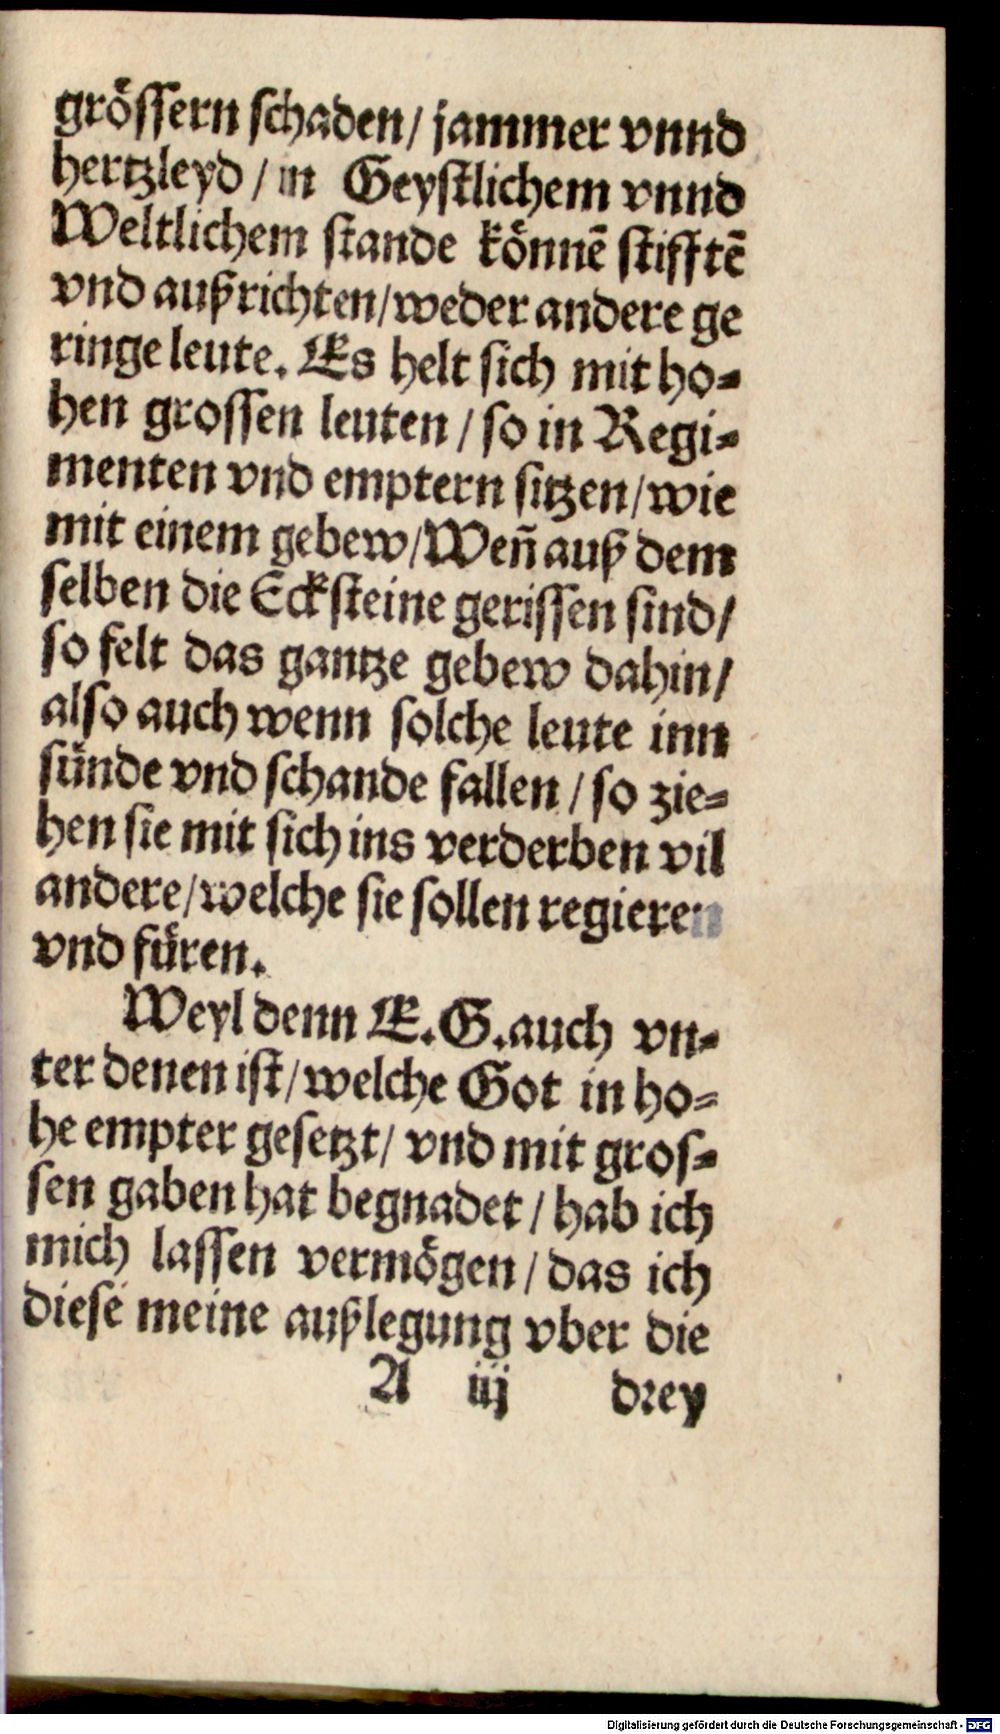 größern schaden / jammer vnnd
hertzleyd / in Geystlichem vnnd
Weltlichem stande könnē stifftē
vnd außrichten / weder andere ge
ringe leute. Es helt sich mit ho⸗
hen grossen leuten / so in Regi⸗
menten vnd emptern sitzen / wie
mit einem gebew / Weñ auß dem
selben die Ecksteine gerissen sind /
so felt das gantze gebew dahin /
also auch wenn solche leute inn
sünde vnd schande fallen / so zie⸗
hen sie mit sich ins verderben vil
andere / welche sie sollen regieren
vnd füren.
Weyl denn E. G. auch vn⸗
ter denen ist / welche Got in ho⸗
he empter gesetzt / vnd mit gros⸗
sen gaben hat begnadet / hab ich
mich lassen vermögen / das ich
diese meine außlegung vber die
A iij drey
Digitalisierung gefördert durch die Deutsche Forschungsgemeinschaft - DFG